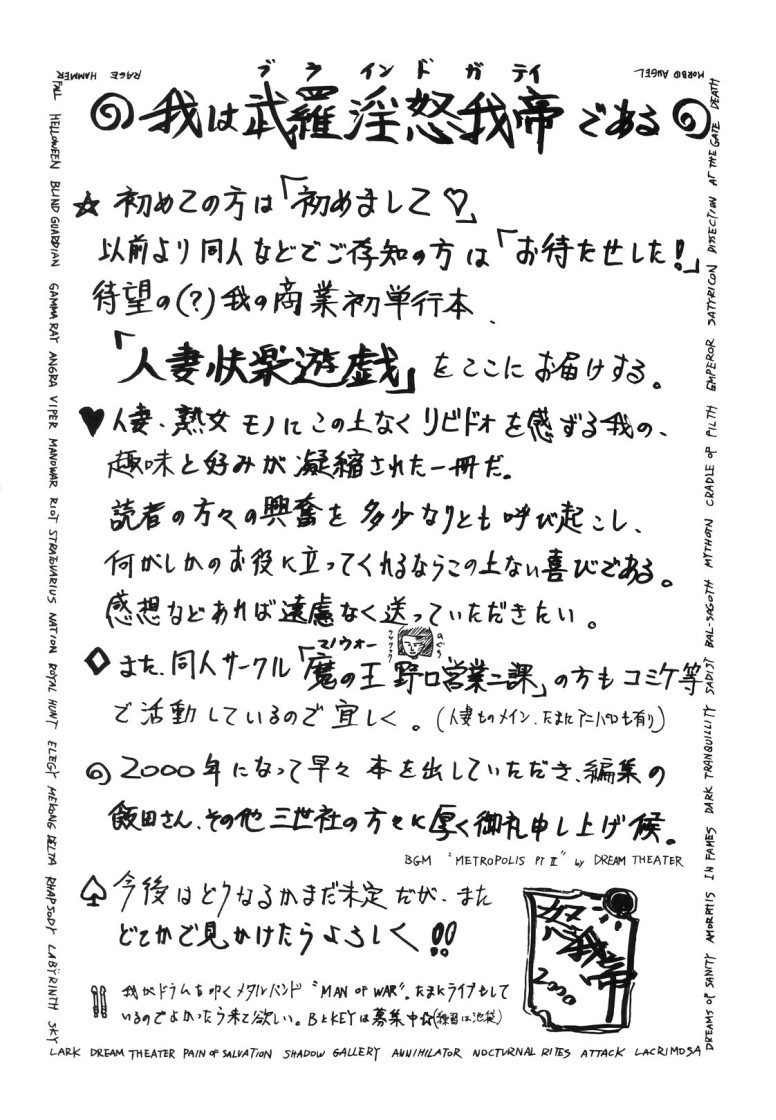 ブラインドガディ
我は武羅淫怒我帝である
☆初めての方は「初めまして♡」
以前より同人などでご存知の方は「お待たせした!」
待望の(?)我の商業初単行本、
「人妻快楽遊戯」をここにお届けする。
♥人妻、熟女モノにこの上なくリビドォを感ずる我の、
趣味と好みが凝縮された一冊だ。
読者の方々の興奮を多少なりとも呼び起こし、
何がしかのお役に立ってくれるならこの上ない喜びである。
感想などあれば遠慮なく送っていただきたい。
マノウォー
◇また、同人サークル「魔の王野口営業二課」の方もコミケ等
で活動しているので宜しく。(人妻ものメイン、たまにアニパロも有り)
2000年になって早々本を出していただき、編集の
飯田さん、その他三世社の方々に厚く御礼申し上げ候。
BGM "METROPOLIS PT II" by DREAM THEATER
♤今後はどうなるかまだ未定だが、また
どこかで見かけたらよろしく!!
我がドラムを叩くメタルバンド"MAN OF WAR"。たまにライブもして
いるのでよかったら来て欲しい。BとKEYは募集中☆(練習は池袋)
怒我帝
2000
RAGE HAMMER
FALL HELLOWEEN BLIND GUARDIAN GAMMA RAY ANGRA VIPER MANOWAR RIOT STRATOVARIUS NATION ROYAL HUNT ELEGY MEKONG DELTA RHAPSODY LABŸRINTH SKY
LARK DREAM THEATER PAIN OF SALVATION SHADOW GALLERY ANNIHILATOR NOCTURNAL RITES ATTACK LACRIMOSA
DREAMS OF SANITY AMORPHIS IN FAMES DARK TRANQUILLITY SADIST BAL-SAGOTH MYTHOTN CRADLE OF FILTH EMPEROR SATYRICON DISSECTION AT THE GATE DEATH
MORBID ANGEL